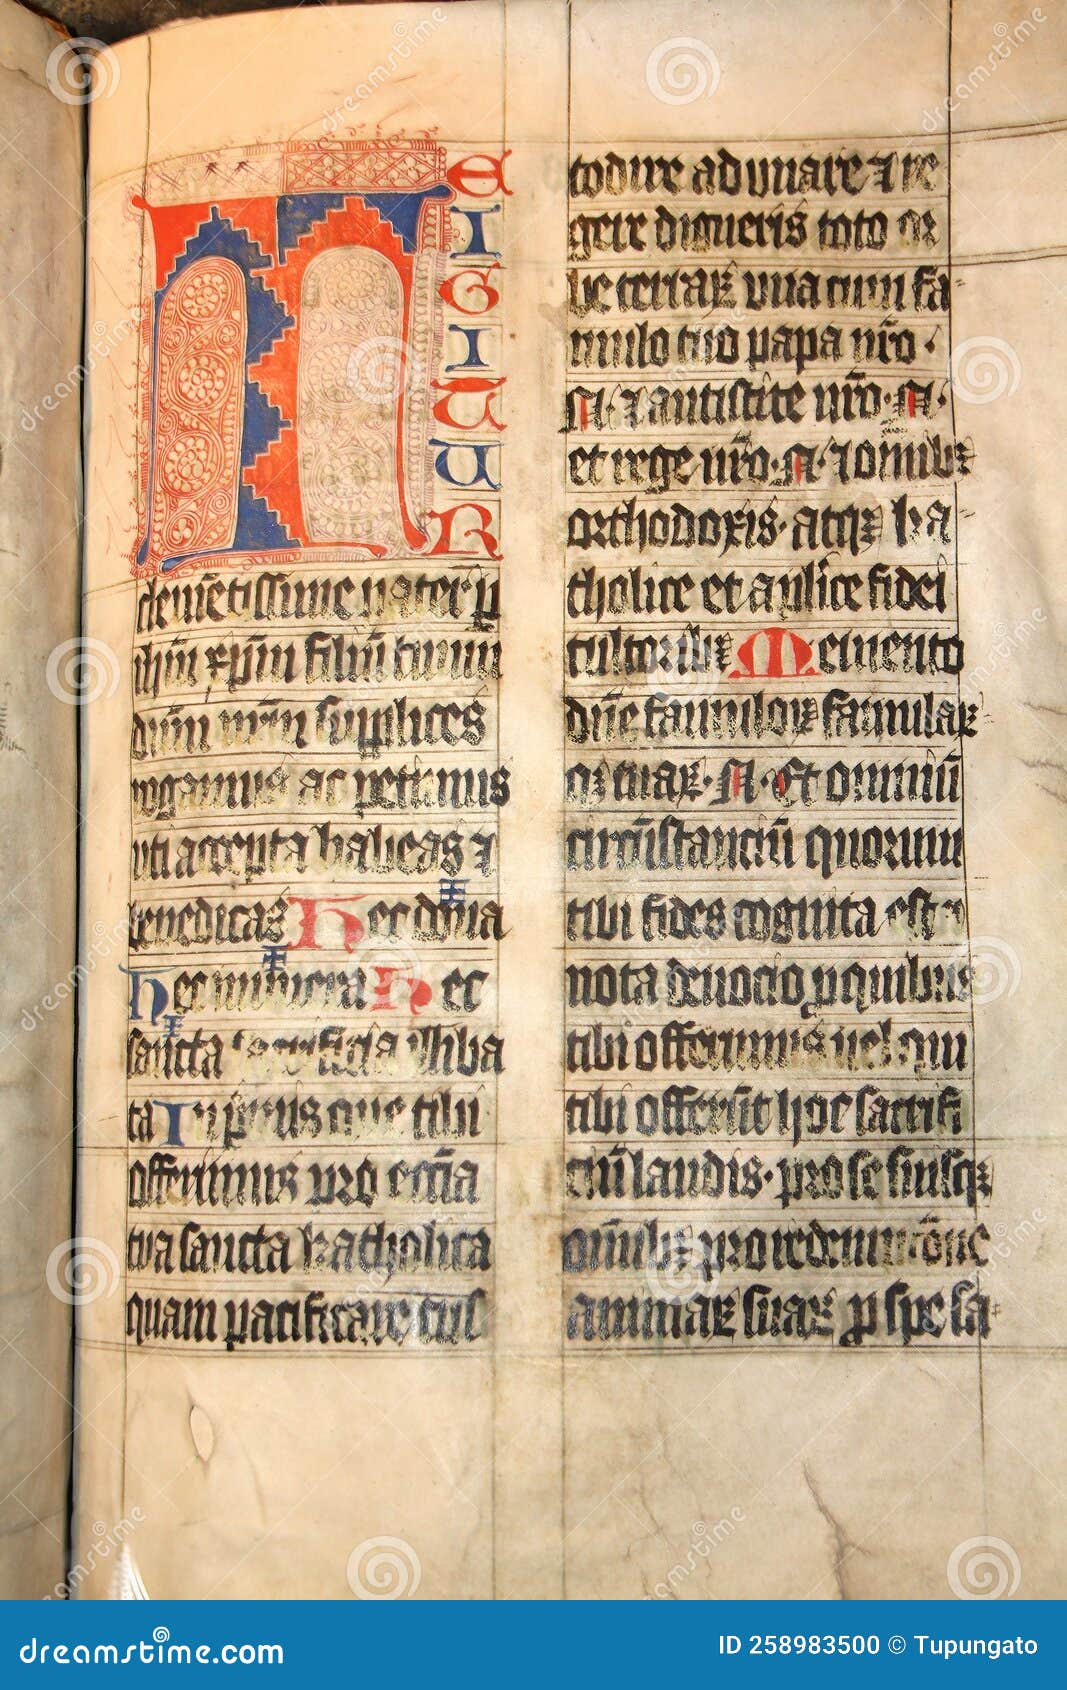 TE IGITUR
clemētissime pater p
ihm̄ xp̄m filiū tuum
dūm nrm̄ supplices
rogamus ac petimus
vti accepta habeas ⁊
benedicas Hec dona
Hec munera Hec
sancta sacrificia illiba
ta In primis que tibi
offerimus pro eccīa
tua sancta katholica
quam pacificare cus
todire adunare ⁊ re
gere digneris toto or
be terraꝝ vna cum fa
mulo tuo papa nr̄o ·
N · ⁊ antistite nr̄o · N ·
et rege nr̄o · N · ⁊ omīibꝫ
orthodoxis · atqꝫ ka
tholice et aplice fidei
cultoribꝫ Memento
dn̄e famuloꝝ famulaꝝ
qꝫ tuaꝝ · N · Et omniū
circūstanciū quorum
tibi fides cognita est ⁊
nota deuocio ꝓ quibus
tibi offerimus uel qui
tibi offerūt hoc sacrifi
ciū laudis · pro se suisqꝫ
omīibꝫ pro redemcōne
animaꝝ suaꝝ ꝓ spe sa-
dreamstime.com
ID 258983500 © Tupungato